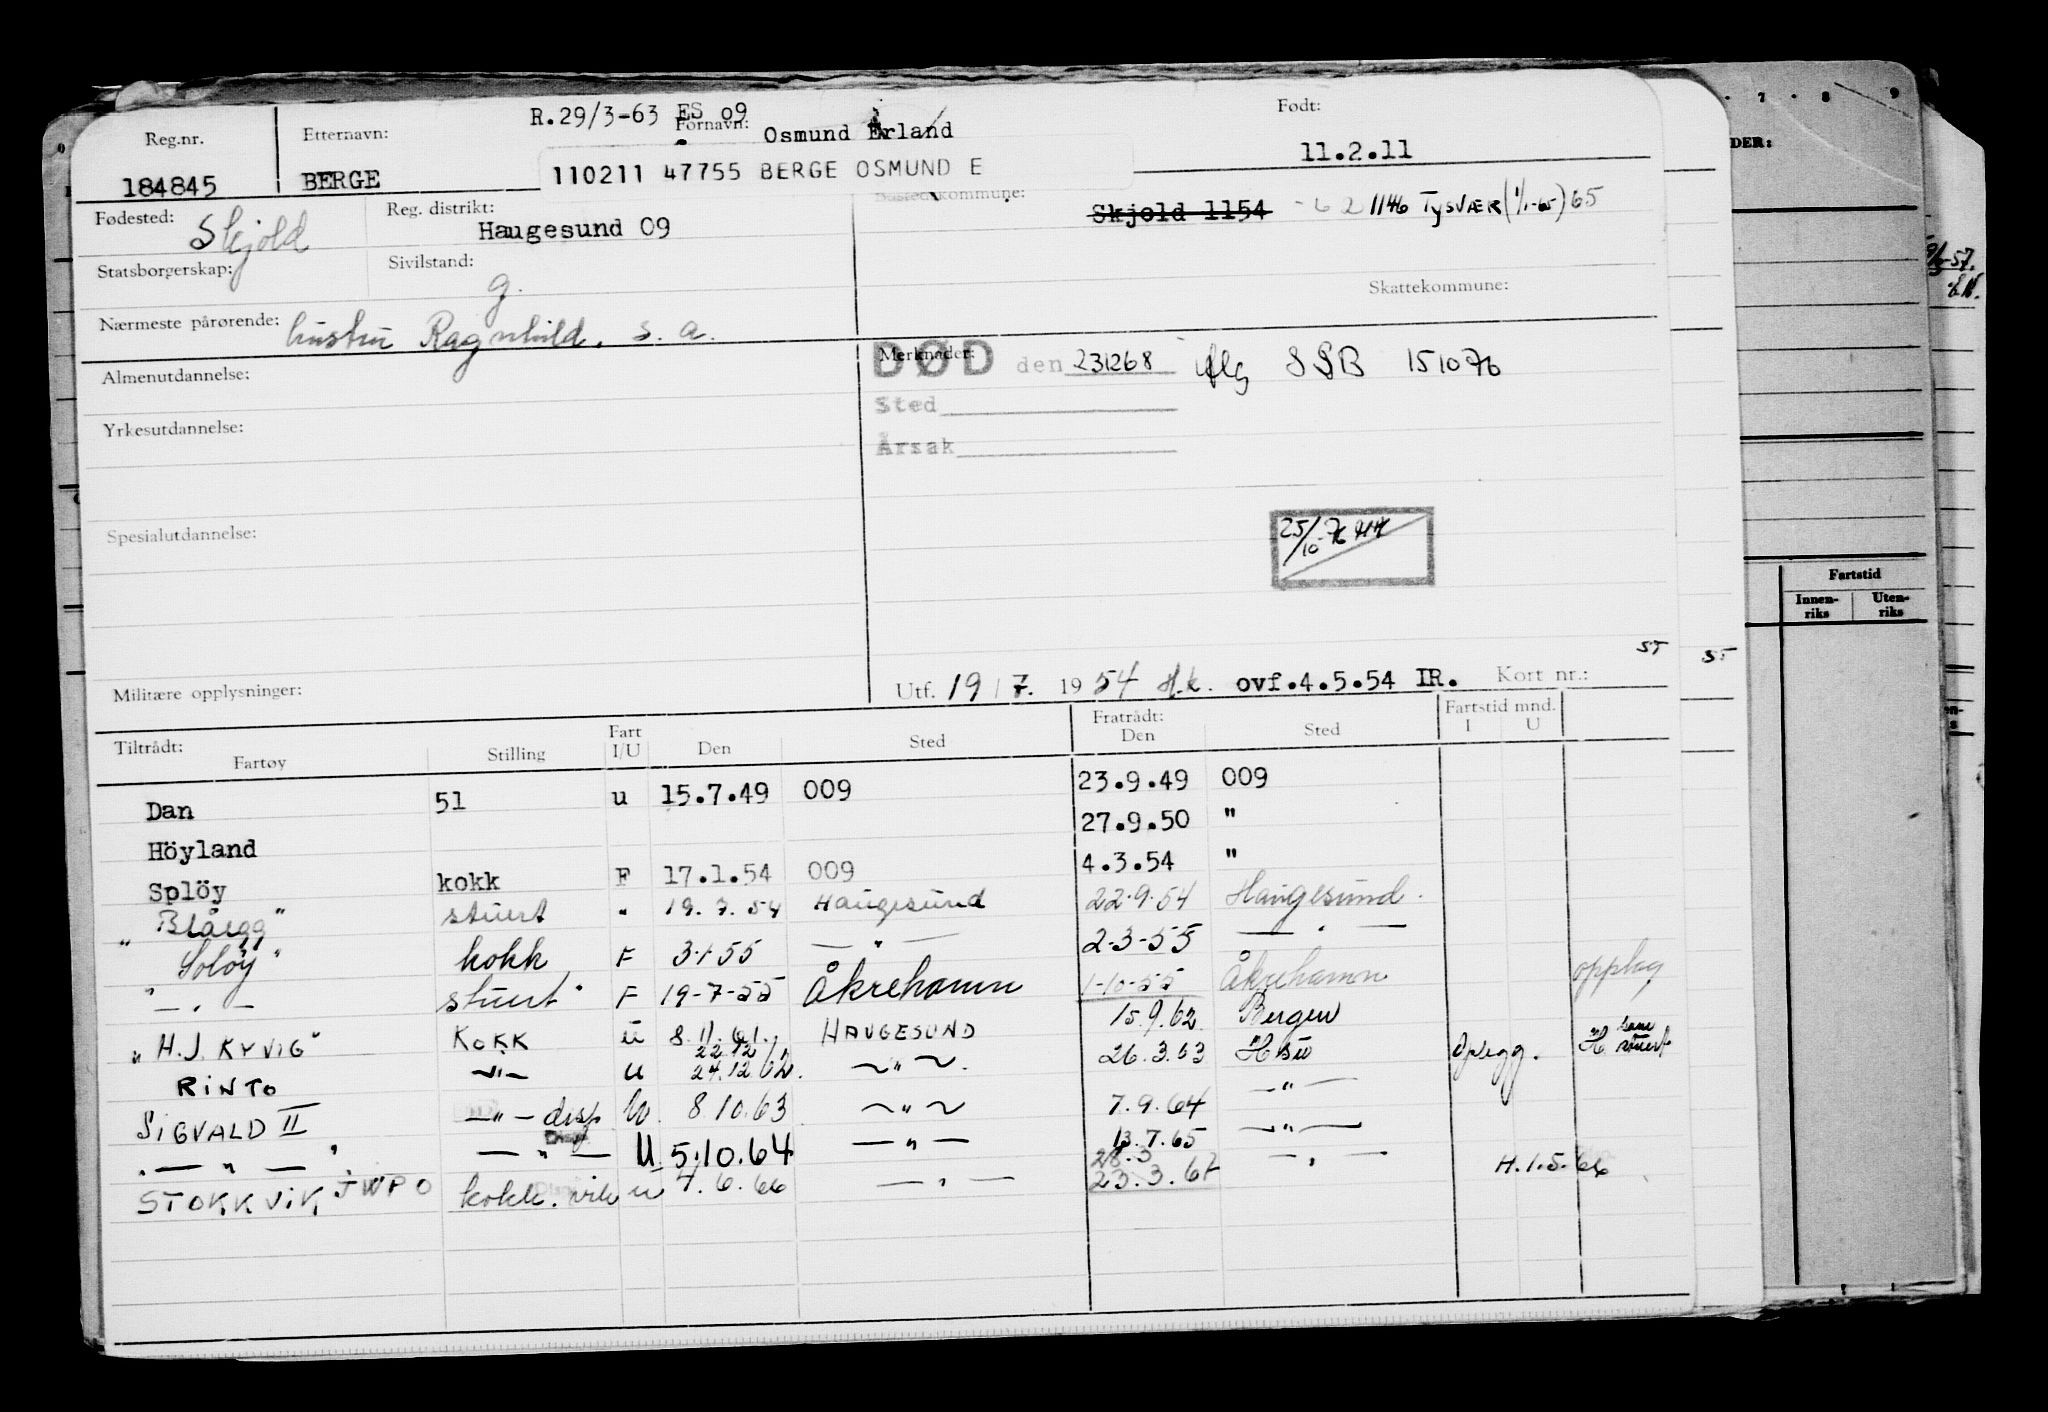 R.29/3-63 ES 09
Reg.nr. Etternavn: Fornavn: Osmund Erland Født:
184845 BERGE 110211 47755 BERGE OSMUND E 11.2.11
Fødested: Skjold Reg. distrikt: Haugesund 09 Bostedskommune: Skjold 1154 - 62 1146 TYSVÆR (1/1-65) 65
Statsborgerskap: Sivilstand: g. Skattekommune:
Nærmeste pårørende: hustru Ragnhild. s. a.
Almenutdannelse: Merknader: DØD den 231268 SSB 151076
Sted
Yrkesutdannelse: Årsak
Spesialutdannelse: 25/10-76
ST
Militære opplysninger: Utf. 19/7. 1954 H.k. ovf.4.5.54 IR. Kort nr.:
Tiltrådt: Fart Fratrådt: Fartstid mnd.
Fartøy Stilling I/U Den Sted Den Sted I U
Dan 51 u 15.7.49 009 23.9.49 009
Höyland 27.9.50 "
Splöy kokk F 17.1.54 009 4.3.54 "
"Blåegg" stuert " 19.7.54 Haugesund 22.9.54 Haugesund.
"Soløy" kokk F 3.1.55 — " — 2-3-55 — " —
" — " — stuert F 19-7-55 Åkrehamn 1-10-55 Åkrehamn opplag
"H.J. KYVIG" KOKK u 8.11.61. HAUGESUND 15.9.62 Bergen
RINTO — " — u 22.12 24.12.62. — " —. 26.3.63 H su Oplegg. H.
SIGVALD II — " — disp U. 8.10.63 — " — 7.9.64 — " —
" — " — " — " — U 5.10.64 — " — 13.7.65 — " —
STOKKVIK JWPO kokk. vik u 7.6.66 — " — 28.3 23.3.67 — " — H.1.5.66
7 8 9
DER:
Fartstid
Innen-riks Uten-riks
ST